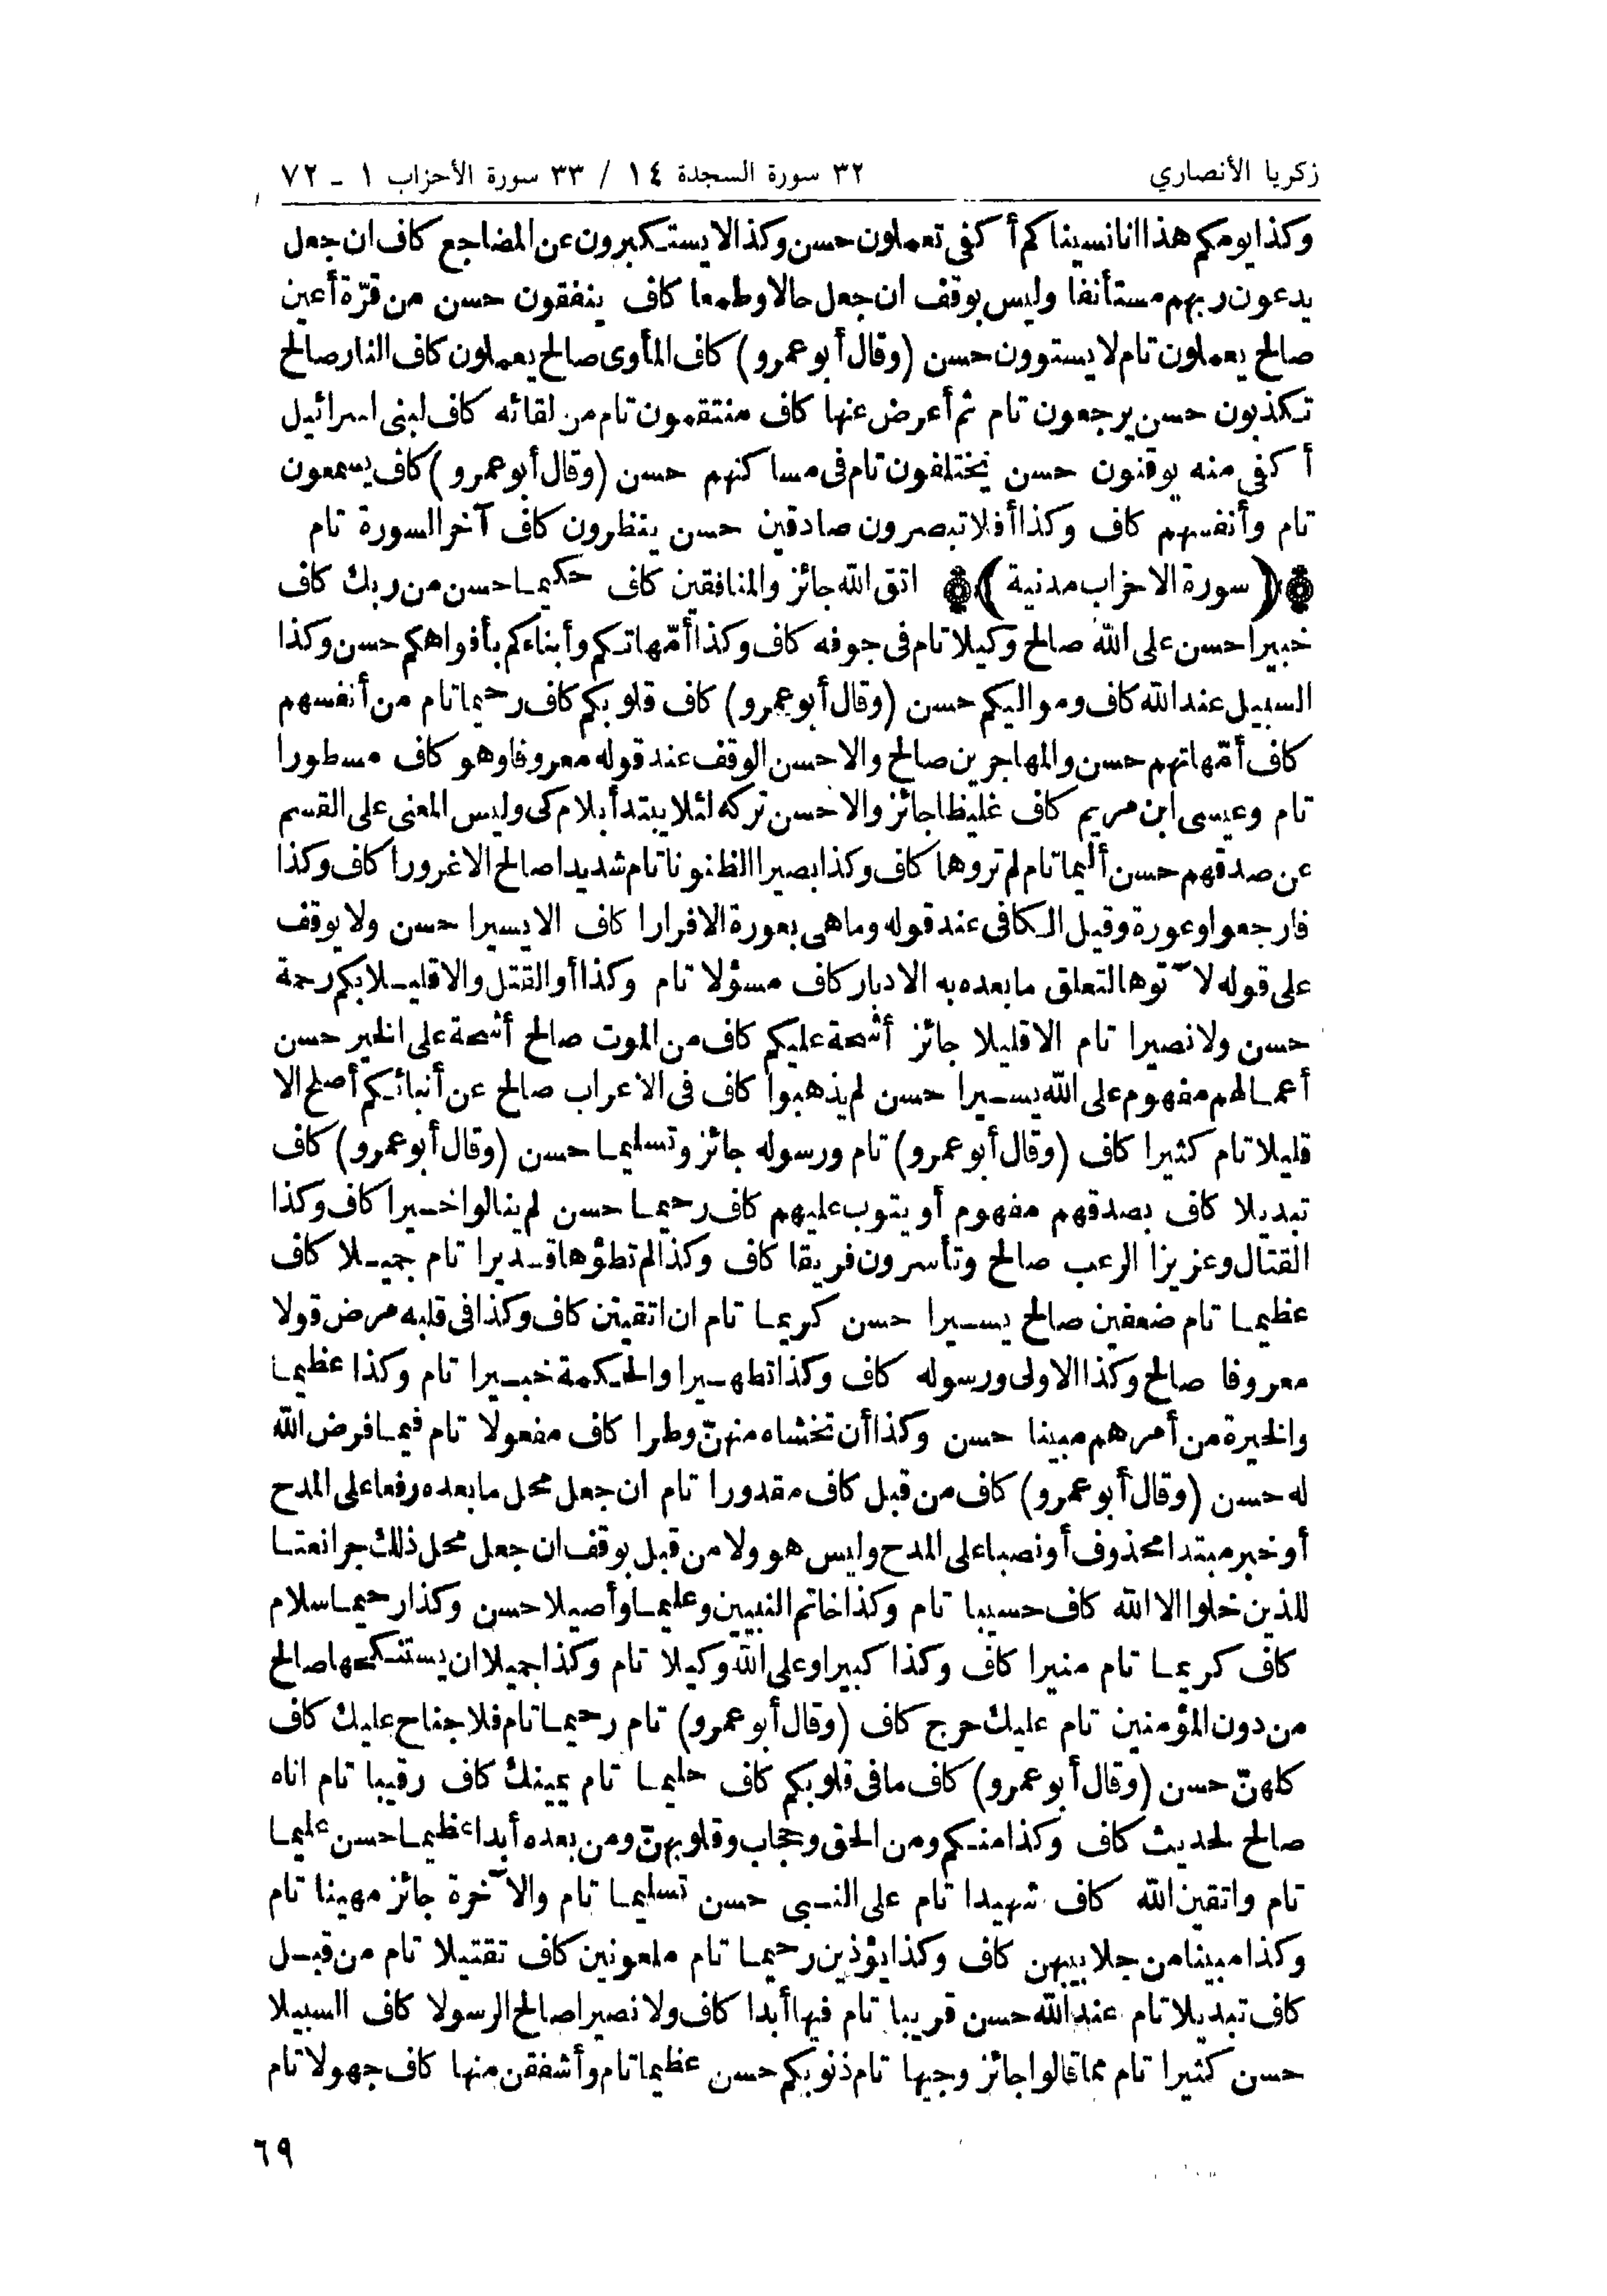 زكريا الأنصاري
٣٢ سورة السجدة ١٤ / ٣٣ سورة الأحزاب ١ - ٧٢
وكذا يومكم هذا انا نسيناكم أكفى تعملون حسن وكذا لا يستكبرون عن المضاجع كاف ان جعل
يدعون ربهم مستأنفا وليس بوقف ان جعل حالا وطمعا كاف ينفقون حسن من قرّة أعين
صالح يعملون تام لا يستوون حسن (وقال أبو عمرو) كاف المأوى صالح يعملون كاف النار صالح
تكذبون حسن يرجعون تام ثم أعرض عنها كاف منتقمون تام من لقائه كاف لبنى اسرائيل
أكفى منه يوقنون حسن يختلفون تام فى مساكنهم حسن (وقال أبو عمرو) كاف يسمعون
تام وأنفسهم كاف وكذا أفلا تبصرون صادقين حسن ينتظرون كاف آخر السورة تام
(سورة الاحزاب مدنية) اتق الله جائز والمنافقين كاف حكيما حسن من ربك كاف
خبيرا حسن على الله صالح وكيلا تام فى جوفه كاف وكذا أمّهاتكم وأبناءكم بأفواهكم حسن وكذا
السبيل عند الله كاف ومواليكم حسن (وقال أبو عمرو) كاف قلوبكم كاف رحيما تام من أنفسهم
كاف أمّهاتهم حسن والمهاجرين صالح والاحسن الوقف عند قوله معروفا وهو كاف مسطورا
تام وعيسى ابن مريم كاف غليظا جائز والاحسن تركه لئلا يبتدأ بلام كى وليس المعنى على القسم
عن صدقهم حسن أليما تام لم تروها كاف وكذا بصيرا الظنونا تام شديدا صالح الا غرورا كاف وكذا
فارجعوا وعورة وقيل الكافى عند قوله وما هى بعورة الا فرارا كاف الا يسيرا حسن ولا يوقف
على قوله لآتوها لتعلق ما بعده به الادبار كاف مسؤلا تام وكذا أو القتل والا قليلا بكم رحمة
حسن ولا نصيرا تام الا قليلا جائز أشحة عليكم كاف من الموت صالح أشحة على الخير حسن
أعمالهم مفهوم على الله يسيرا حسن لم يذهبوا كاف فى الاعراب صالح عن أنبائكم أصلح الا
قليلا تام كثيرا كاف (وقال أبو عمرو) تام ورسوله جائز وتسليما حسن (وقال أبو عمرو) كاف
تبديلا كاف بصدقهم مفهوم أو يتوب عليهم كاف رحيما حسن لم ينالوا خيرا كاف وكذا
القتال وعزيزا الرعب صالح وتأسرون فريقا كاف وكذا لم تطؤها قديرا تام جميلا كاف
عظيما تام ضعفين صالح يسيرا حسن كريما تام ان اتقيتن كاف وكذا فى قلبه مرض قولا
معروفا صالح وكذا الاولى ورسوله كاف وكذا تطهيرا والحكمة خبيرا تام وكذا عظيما
والخيرة من أمرهم مبينا حسن وكذا أن تخشاه منهنّ وطرا كاف مفعولا تام فيما فرض الله
له حسن (وقال أبو عمرو) كاف من قبل كاف مقدورا تام ان جعل محل ما بعده رفعا على المدح
أو خبر مبتدا محذوف أو نصبا على المدح وليس هو ولا من قبل بوقف ان جعل محل ذلك جرا نعتا
للذين خلوا الا الله كاف حسيبا تام وكذا خاتم النبيين وعليما وأصيلا حسن وكذا رحيما سلام
كاف كريما تام منيرا كاف وكذا كبيرا وعلى الله وكيلا تام وكذا جميلا ان يستنكحها صالح
من دون المؤمنين تام عليك حرج كاف (وقال أبو عمرو) تام رحيما تام فلا جناح عليك كاف
كلهنّ حسن (وقال أبو عمرو) كاف ما فى قلوبكم كاف حليما تام يمينك كاف رقيبا تام اناه
صالح لحديث كاف وكذا منكم ومن الحق وحجاب وقلوبهنّ ومن بعده أبدا عظيما حسن عليما
تام واتقين الله كاف شهيدا تام على النبى حسن تسليما تام والآخرة جائز مهينا تام
وكذا مبينا من جلابيبهن كاف وكذا يؤذين رحيما تام ملعونين كاف تقتيلا تام من قبل
كاف تبديلا تام عند الله حسن قريبا تام فيها أبدا كاف ولا نصيرا صالح الرسولا كاف السبيلا
حسن كثيرا تام مما قالوا جائز وجيها تام ذنوبكم حسن عظيما تام وأشفقن منها كاف جهولا تام
٦٩